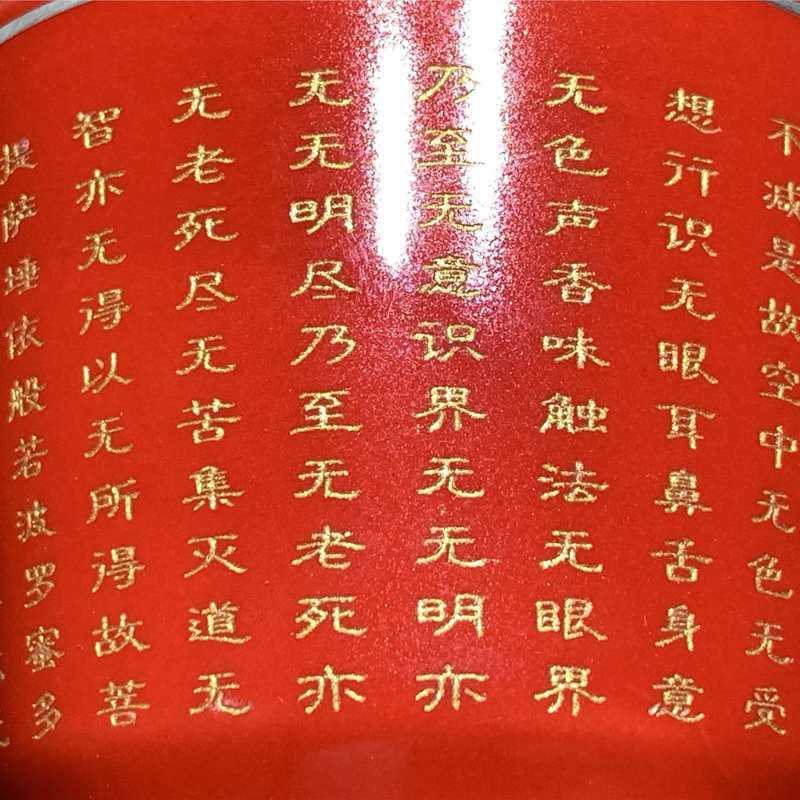 不减是故空中无色无受
想行识无眼耳鼻舌身意
无色声香味触法无眼界
乃至无意识界无无明亦
无无明尽乃至无老死亦
无老死尽无苦集灭道无
智亦无得以无所得故菩
提萨埵依般若波罗蜜多